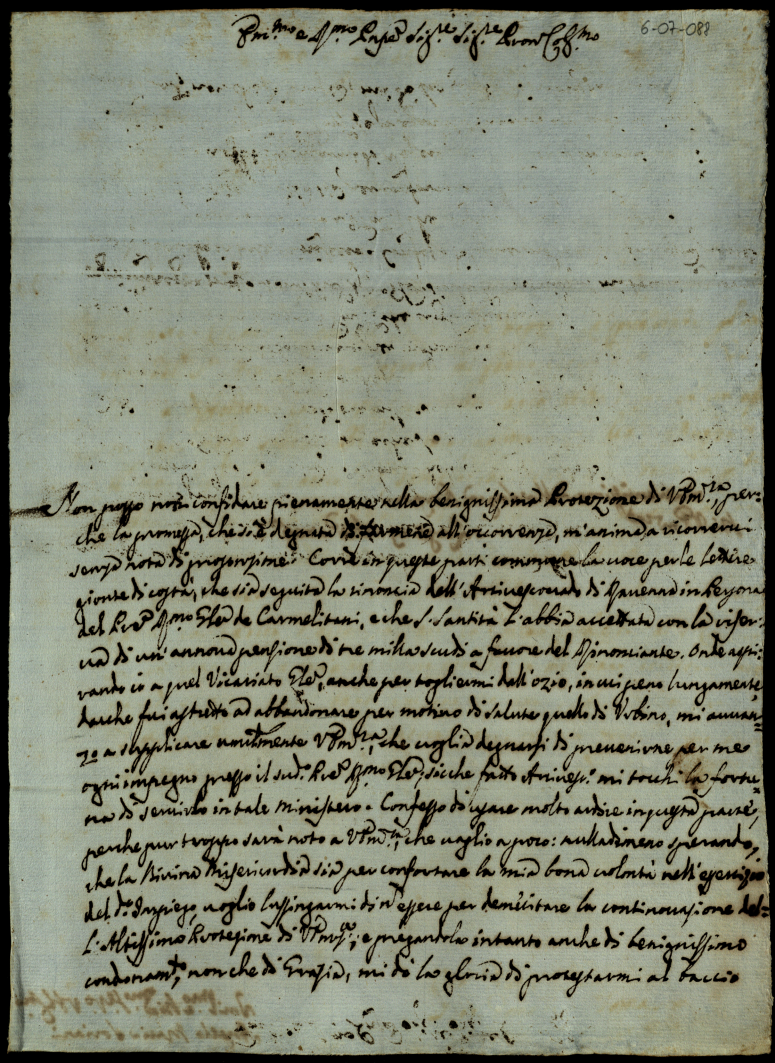 6-07-088
Em.mo e R.mo Prnpe Sig.re Sig.re Pron Col.mo
Non posso non confidare pienamente nella benignissima Protezione di V. Em.za, per-
che la promessa, che si è degnata di farmene all'occorrenza, m'anima a ricorrervi
senza nota di prosonzione. Corre in queste parti commune la voce per le lettere
gionte di costà, che sia seguita la rinoncia dell'Arcivescovado di Ravenna in Persona
del P.re R.mo Gle de Carmelitani, e che S. Santità l'abbia accettata con la riser-
va di un'annova pensione di tre milla scudi a favore del Rinonciante. Onde aspi-
rando io a quel Vicariato Gle, anche per togliermi dall'ozio, in cui peno lungamente,
dacche fui astretto ad abbandonare per motivo di salute quello di Urbino, mi avvan-
zo a supplicare umilmente V. Em.za, che voglia degnarsi di prevenirne per me
ogni impegno presso il sud.o P.re R.mo Gle, sicche fatto Arcives.o mi tocchi la fortu-
na di servirlo in tale Ministero. Confesso di usare molto ardire in questa parte,
perche pur troppo sarà noto a V. Em.za, che vaglio a poco: nulladimeno sperando,
che la Divina Misericordia sia per confortare la mia bona volontà nell'esercizio
del d.o Impiego, voglio lusingarmi di n essere per demeritare la continovazione del-
l'Altissima Protezione di V. Em.za; e pregandola intanto anche di benignissimo
condonam.to, non che di Grazia, mi dò la gloria di protestarmi al baccio